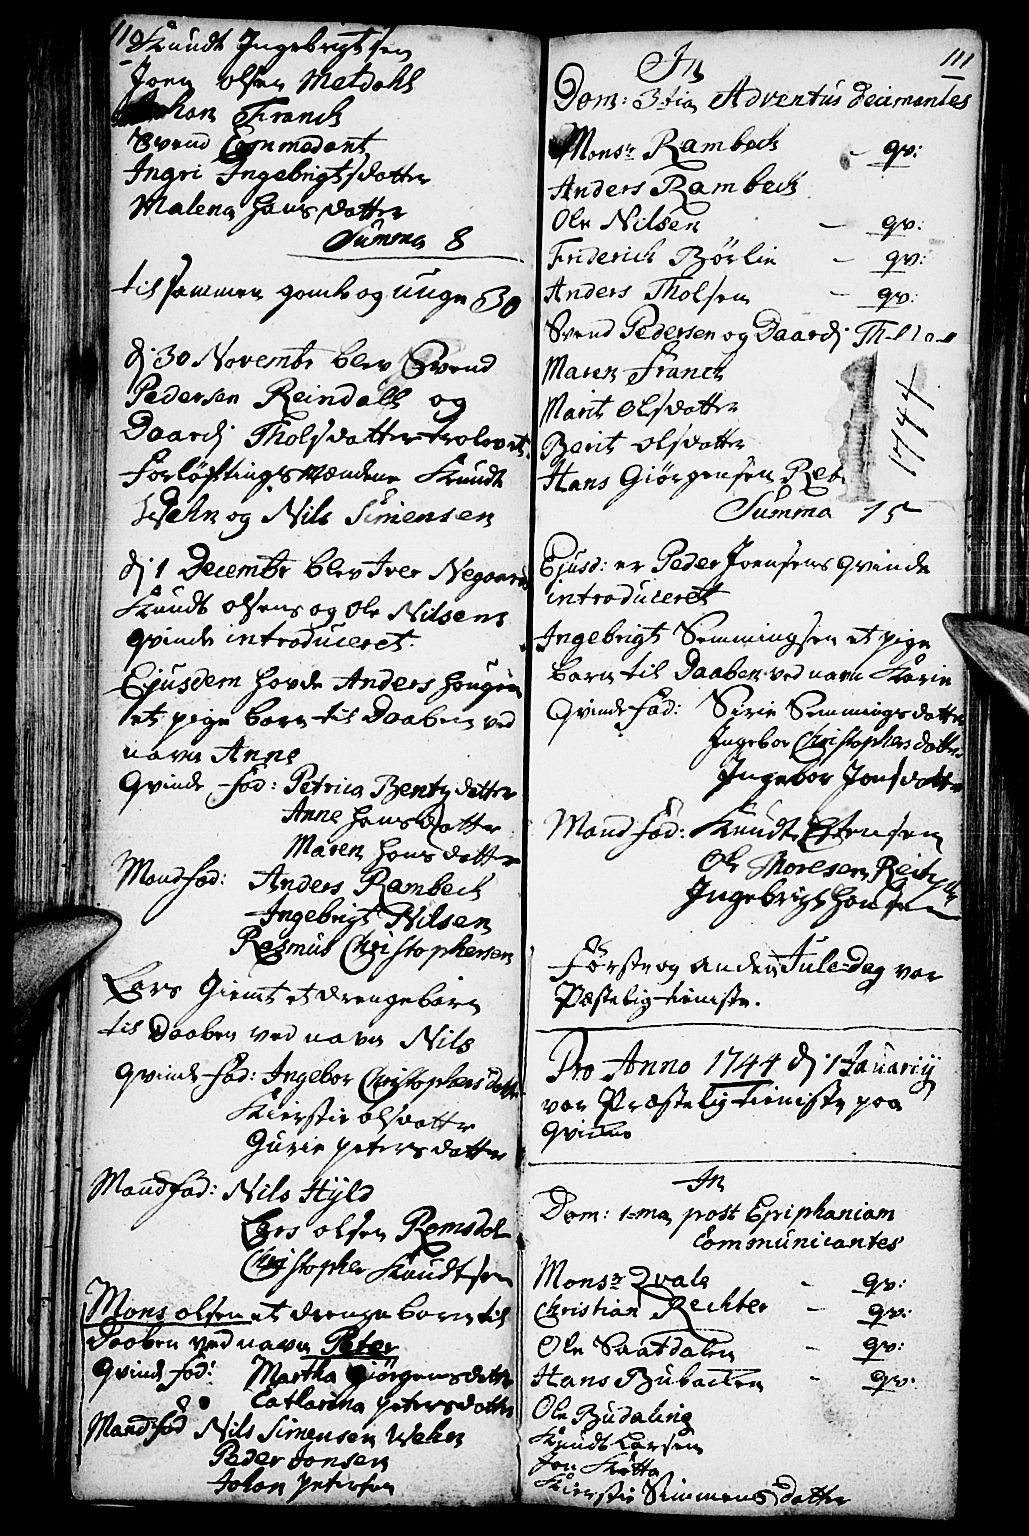 110
Knudt Ingebrigtsen
Joen Olsen Meldahl
Johan Franck
Svend Commedant
Ingri Ingebrigtsdatter
Malena Hansdatter
Summa 8
til sammen gamle og unge 30
d: 30 Novembr blev Svend
Pedersen Reindall og
Daardi Tholsdatter trolovet.
Forløftings mændene Knudt
Wehn og Nils Simensen
d: 1 Decembr blev Iver Negaards
Knudt Olsens og Ole Nilsens
qvinde introduceret.
Ejusdem havde Anders Hougen
et pige barn til Daaben ved
navn Anne
Qvinde fad: Petrica Bentzdatter
Anne Hansdatter
Maren Hansdatter
Mandfad: Anders Rambeck
Ingebrigt Nilsen
Rasmus Christophersen
Lars Giemt et drengebarn
til Daaben ved navn Nils
Qvinde fad: Ingebor Christophersdatter
Kierstie Olsdatter
Gurie Petersdatter
Mandfad: Nils Hyld
Lars Olsen Romsdal
Christopher Knudtsen
Mons Olsen et drenge barn til
Daaben ved navn Peter
Qvindfad: Martha Giörgensdatter
Catharina Petersdatter
Mandfad Nils Simensen Wehn
Peder Jonsen
Johan Petersen
111
In
Dom: 3tia Adventus decimantes
Monsr Rambeck - qv:
Anders Rambeck
Ole Nilsen - qv:
Friderich Börlie - qv:
Anders Tholsen - qv:
Svend Pedersen og Daardi
Maren Franck
Marit Olsdatter
Berit Olsdatter
1744
Hans Giörgensen
Summa 15
Ejusd: er Peder Joensens qvinde
introduceret
Ingebrigt Semmingsen et pige
barn til Daaben ved navn Karin
Qvindefad: Sirie Semmingsdatter
Ingebor Christophersdatter
Ingebor Jonsdatter
Mandfad: Knudt Estensen
Ole Moresen
Ingebrigt Hansen
Förste og anden Jule-Dag var
Præstelig tieniste.
Pro Anno 1744 d: 1 Januarij
var Præstelig tieniste paa
Qvinne
In
Dom: 1-ma post Epiphaniam
Communicantes
Monsr Qvale - qv:
Christian Rechter - qv:
Ole Saatdalen - qv:
Hans Bubacken - qv:
Ole Budaling
Knudt Larsen
Jon Kötta
Kierstie Simmensdatter